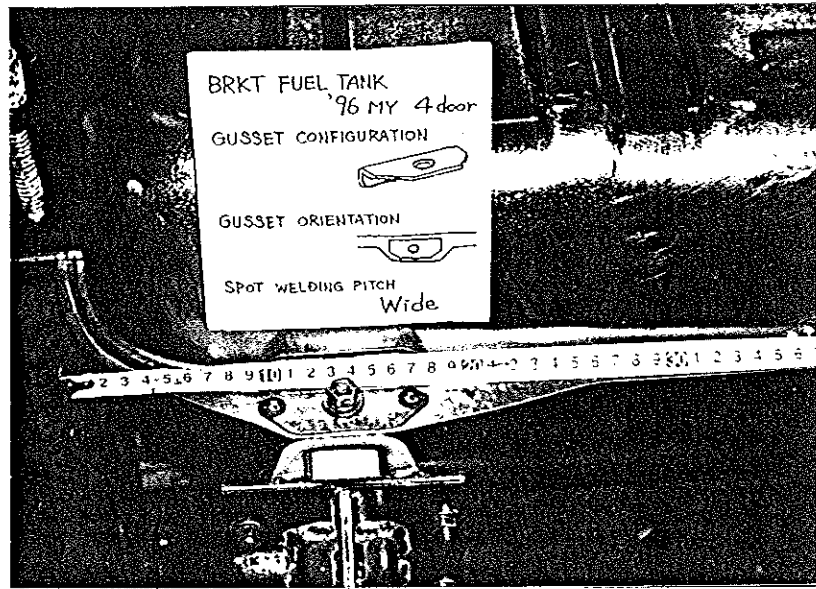 BRKT FUEL TANK
'96 MY 4 door
GUSSET CONFIGURATION
GUSSET ORIENTATION
SPOT WELDING PITCH
Wide
2 3 4 5 6 7 8 9 10 1 2 3 4 5 6 7 8 9 20 1 2 3 4 5 6 7 8 9 30 1 2 3 4 5 6